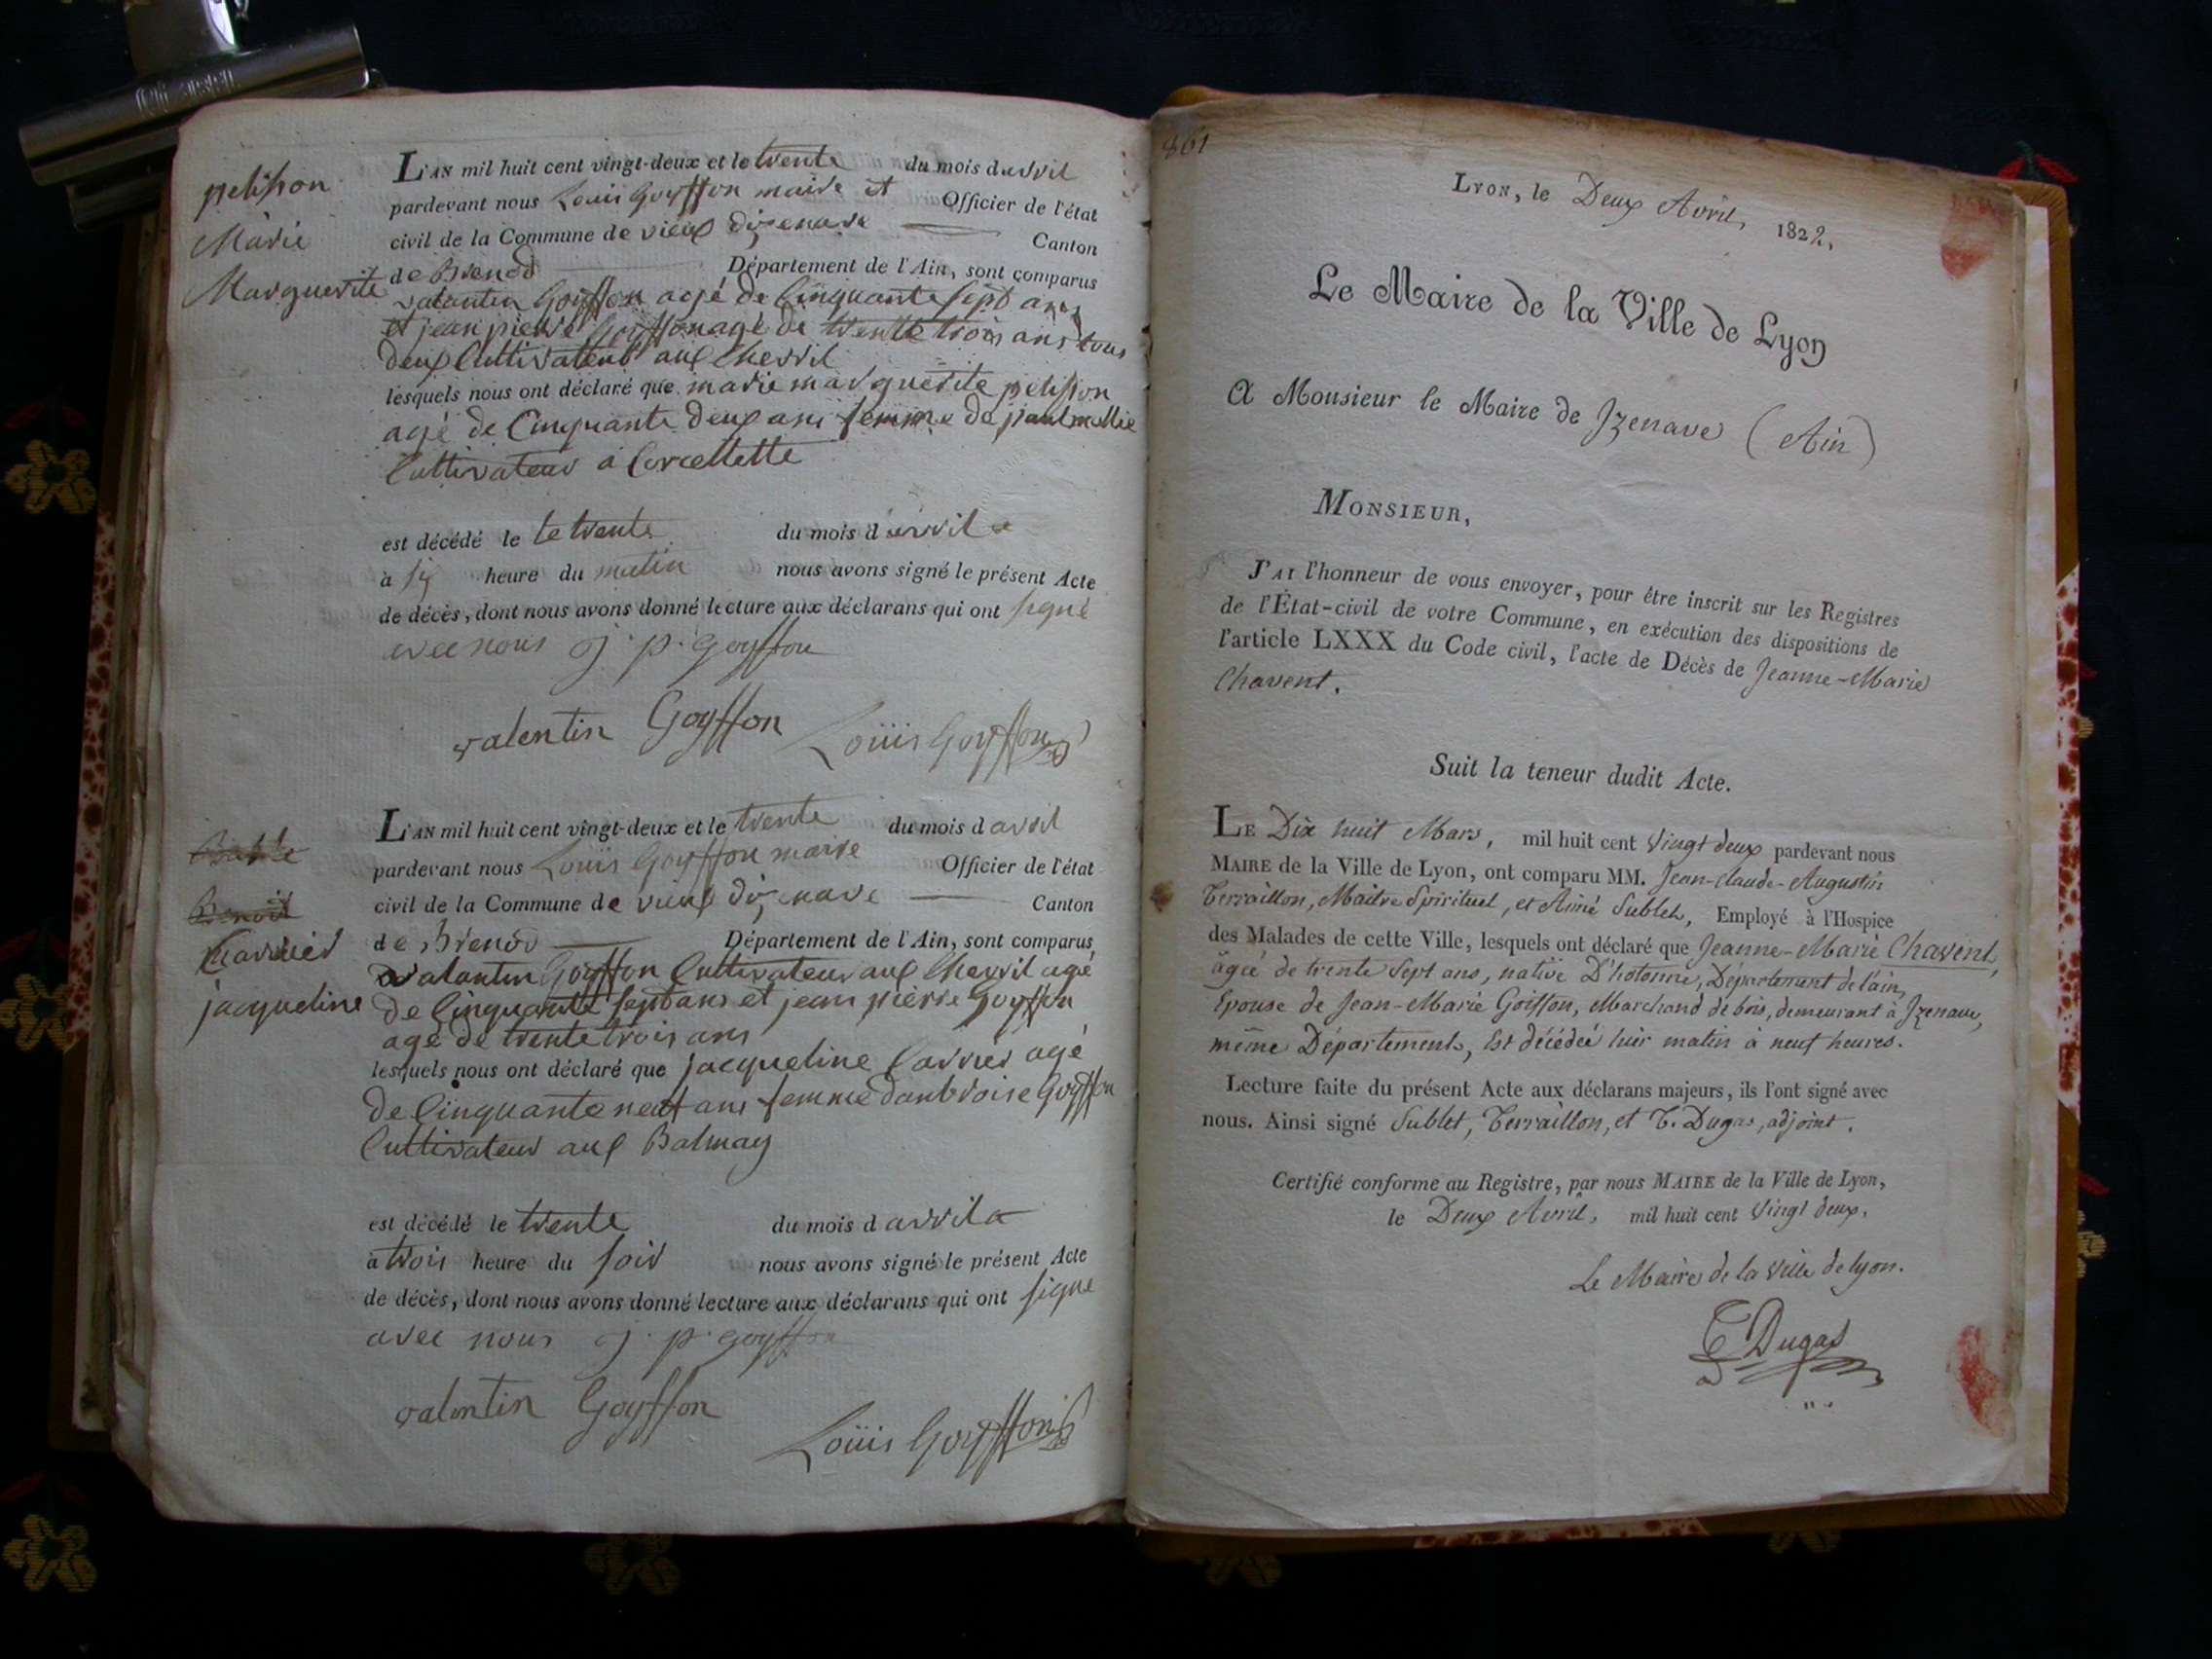 petission
Marie
Marguerite
L'AN mil huit cent vingt-deux et le trente du mois d avril
pardevant nous Louis Goyffon maire et Officier de l'état
civil de la Commune de vieux dizenave Canton
de Brenod Département de l'Ain, sont comparus
valantin Goyffon agé de Cinquante sept ans
et jean pierre Goyffon agé de trente trois ans tous
deux Cultivateur aux Chevril
lesquels nous ont déclaré que marie marguerite petission
agé de Cinquante deux ans femme de paul
Cultivateur a Corcellette
est décédé le le trente du mois d avril
à heure du matin nous avons signé le présent Acte
de décès, dont nous avons donné lecture aux déclarans qui ont signé
avec nous j. p. goyffon
valentin Goyffon Loüis Goyffon
Benoit
Carrier
jacqueline
L'AN mil huit cent vingt-deux et le trente du mois d avril
pardevant nous Louis Goyffon maire Officier de l'état
civil de la Commune de vieux dizenave Canton
de Brenod Département de l'Ain, sont comparus
valantin Goyffon Cultivateur aux Chevril agé
de Cinquante sept ans et jean pierre goyffon
agé de trente trois ans
lesquels nous ont déclaré que jacqueline Carrier agé
de Cinquante neuf ans femme d'anbroise Goyffon
Cultivateur aux Balmay
est décédé le trente du mois d avril a
à trois heure du soir nous avons signé le présent Acte
de décès, dont nous avons donné lecture aux déclarans qui ont signé
avec nous j. p. goyffon
valentin Goyffon
Loüis Goyffon
861
LYON, le Deux Avril, 1822,
Le Maire de la Ville de Lyon
A Monsieur le Maire de Izenave (Ain)
MONSIEUR,
J'AI l'honneur de vous envoyer, pour être inscrit sur les Registres
de l'État-civil de votre Commune, en exécution des dispositions de
l'article LXXX du Code civil, l'acte de Décès de Jeanne-Marie
Chavent.
Suit la teneur dudit Acte.
LE Dix huit Mars, mil huit cent Vingt deux pardevant nous
MAIRE de la Ville de Lyon, ont comparu MM. Jean-Claude-Augustin
Terraillon, Maitre Spirituel, et Aimé Sublet, Employé à l'Hospice
des Malades de cette Ville, lesquels ont déclaré que Jeanne-Marie Chavent,
âgée de trente sept ans, native D'hotonne, Département de l'ain,
Epouse de Jean-Marie Goiffon, Marchand de bois, demeurant à Izenave,
même Département, Est décédée hier matin à neuf heures.
Lecture faite du présent Acte aux déclarans majeurs, ils l'ont signé avec
nous. Ainsi signé Sublet, Terraillon, et T. Dugas, adjoint.
Certifié conforme au Registre, par nous MAIRE de la Ville de Lyon,
le Deux Avril, mil huit cent Vingt deux.
Le Maire de la Ville de Lyon.
T Dugas